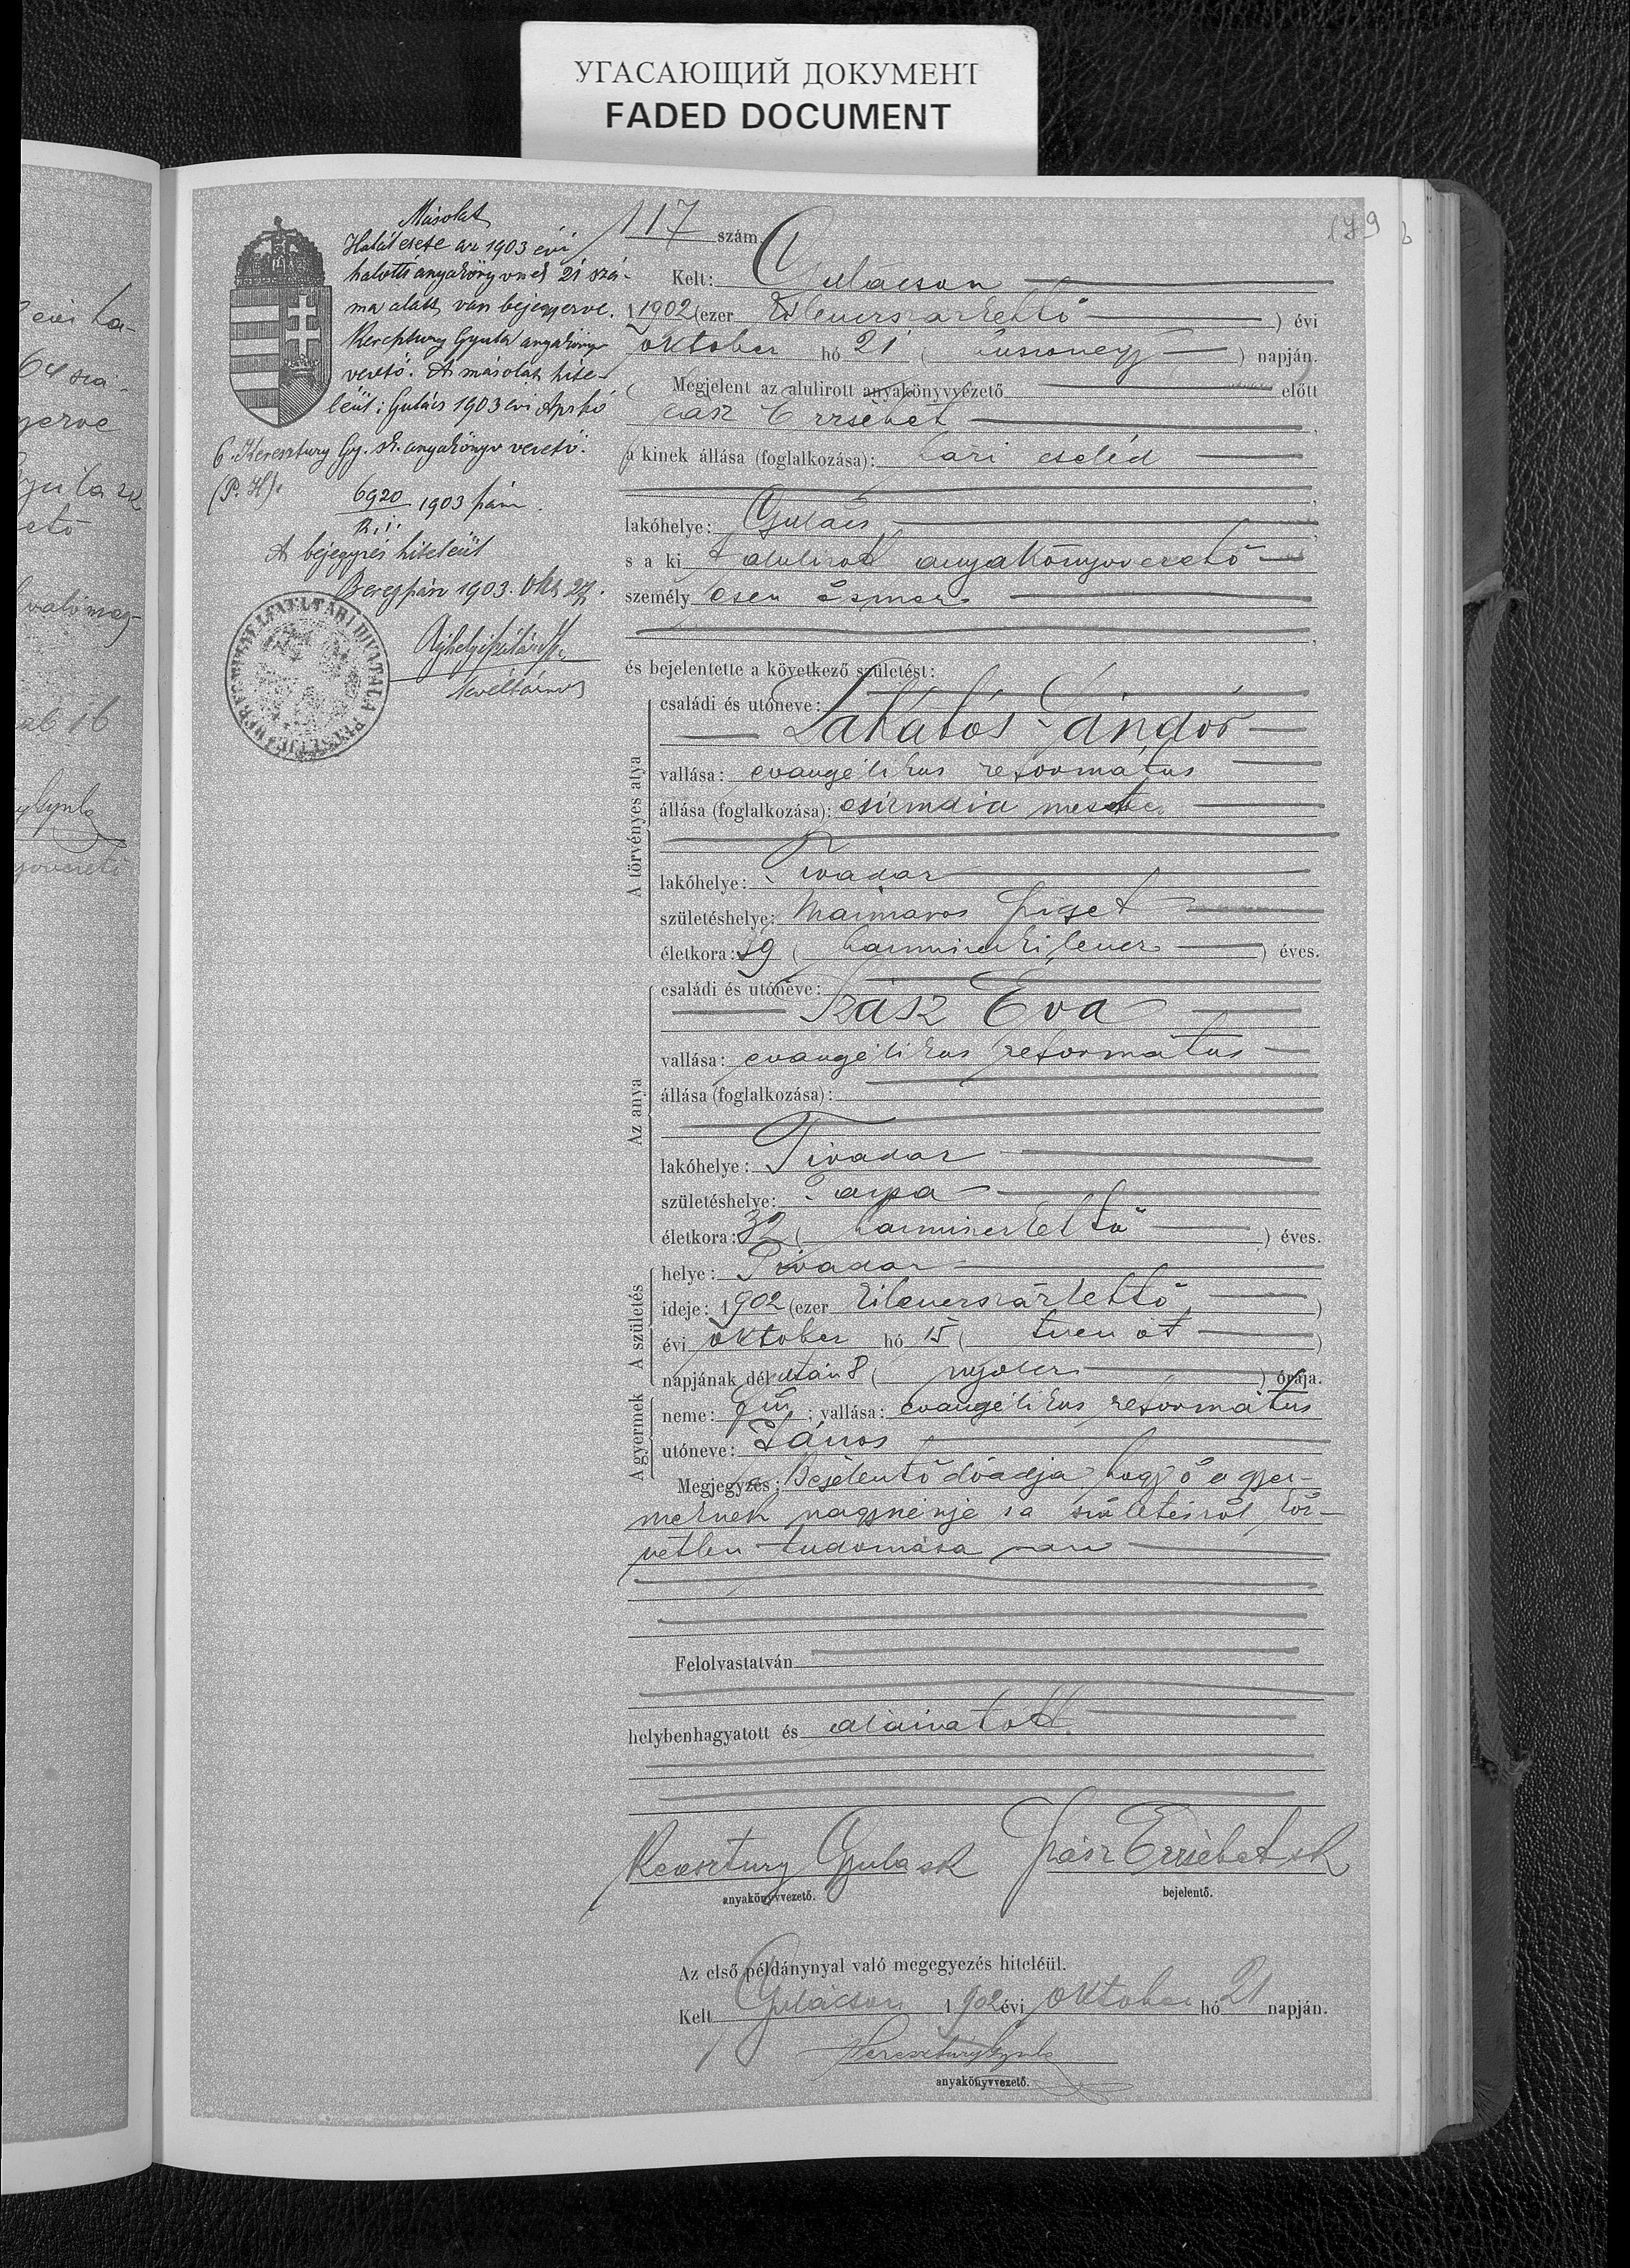 УГАСАЮЩИЙ ДОКУМЕНТ
FADED DOCUMENT
Másolat
Halál esete az 1903 évi
halotti anyakönyvnek 21 szá-
ma alatt van bejegyezve.
Keresztury Gyula anyakönyv
vezető. A másolat hite-
léül: Gulács 1903 évi Április hó
6. Keresztury Gy. sk. anyakönyv vezető.
(P. H.)
6920
1903 szám.
A bejegyzés hiteléül
Beregszász 1903. Okt 27.
levéltárnok
117 szám
Kelt: Gulácson
1902 (ezer kilencszázkettő) évi
október hó 21 (huszonegy) napján.
Megjelent az alulirott anyakönyvvezető előtt
Szász Erzsébet
a kinek állása (foglalkozása): házi cseléd
lakóhelye: Gulács
s a kit alulirott anyakönyvvezető
személyesen ismer
és bejelentette a következő születést:
A törvényes atya
családi és utóneve:
Lakatos Sándor
vallása: evangélikus református
állása (foglalkozása): csizmadia mester
lakóhelye: Tivadar
születéshelye: Mármaros Sziget
életkora: 39 (harminckilenc) éves.
Az anya
családi és utóneve:
Szász Éva
vallása: evangélikus református
állása (foglalkozása):
lakóhelye: Tivadar
születéshelye: Tarpa
életkora: 32 (harminckettő) éves.
A születés
helye: Tivadar
ideje: 1902 (ezer kilencszázkettő)
évi október hó 15 (tizenöt)
napjának délután 8 (nyolc) órája.
A gyermek
neme: fiú; vallása: evangélikus református
utóneve: János
Megjegyzés: Bejelentő előadja hogy ő a gyer-
meknek nagynénje s a születésről köz-
vetlen tudomása van
Felolvastatván
helybenhagyatott és aláíratott.
Keresztury Gyula sk Szász Erzsébet sk
anyakönyvvezető. bejelentő.
Az első példánynyal való megegyezés hiteléül.
Kelt Gulácson 1902 évi október hó 21 napján.
Keresztury Gyula
anyakönyvvezető.